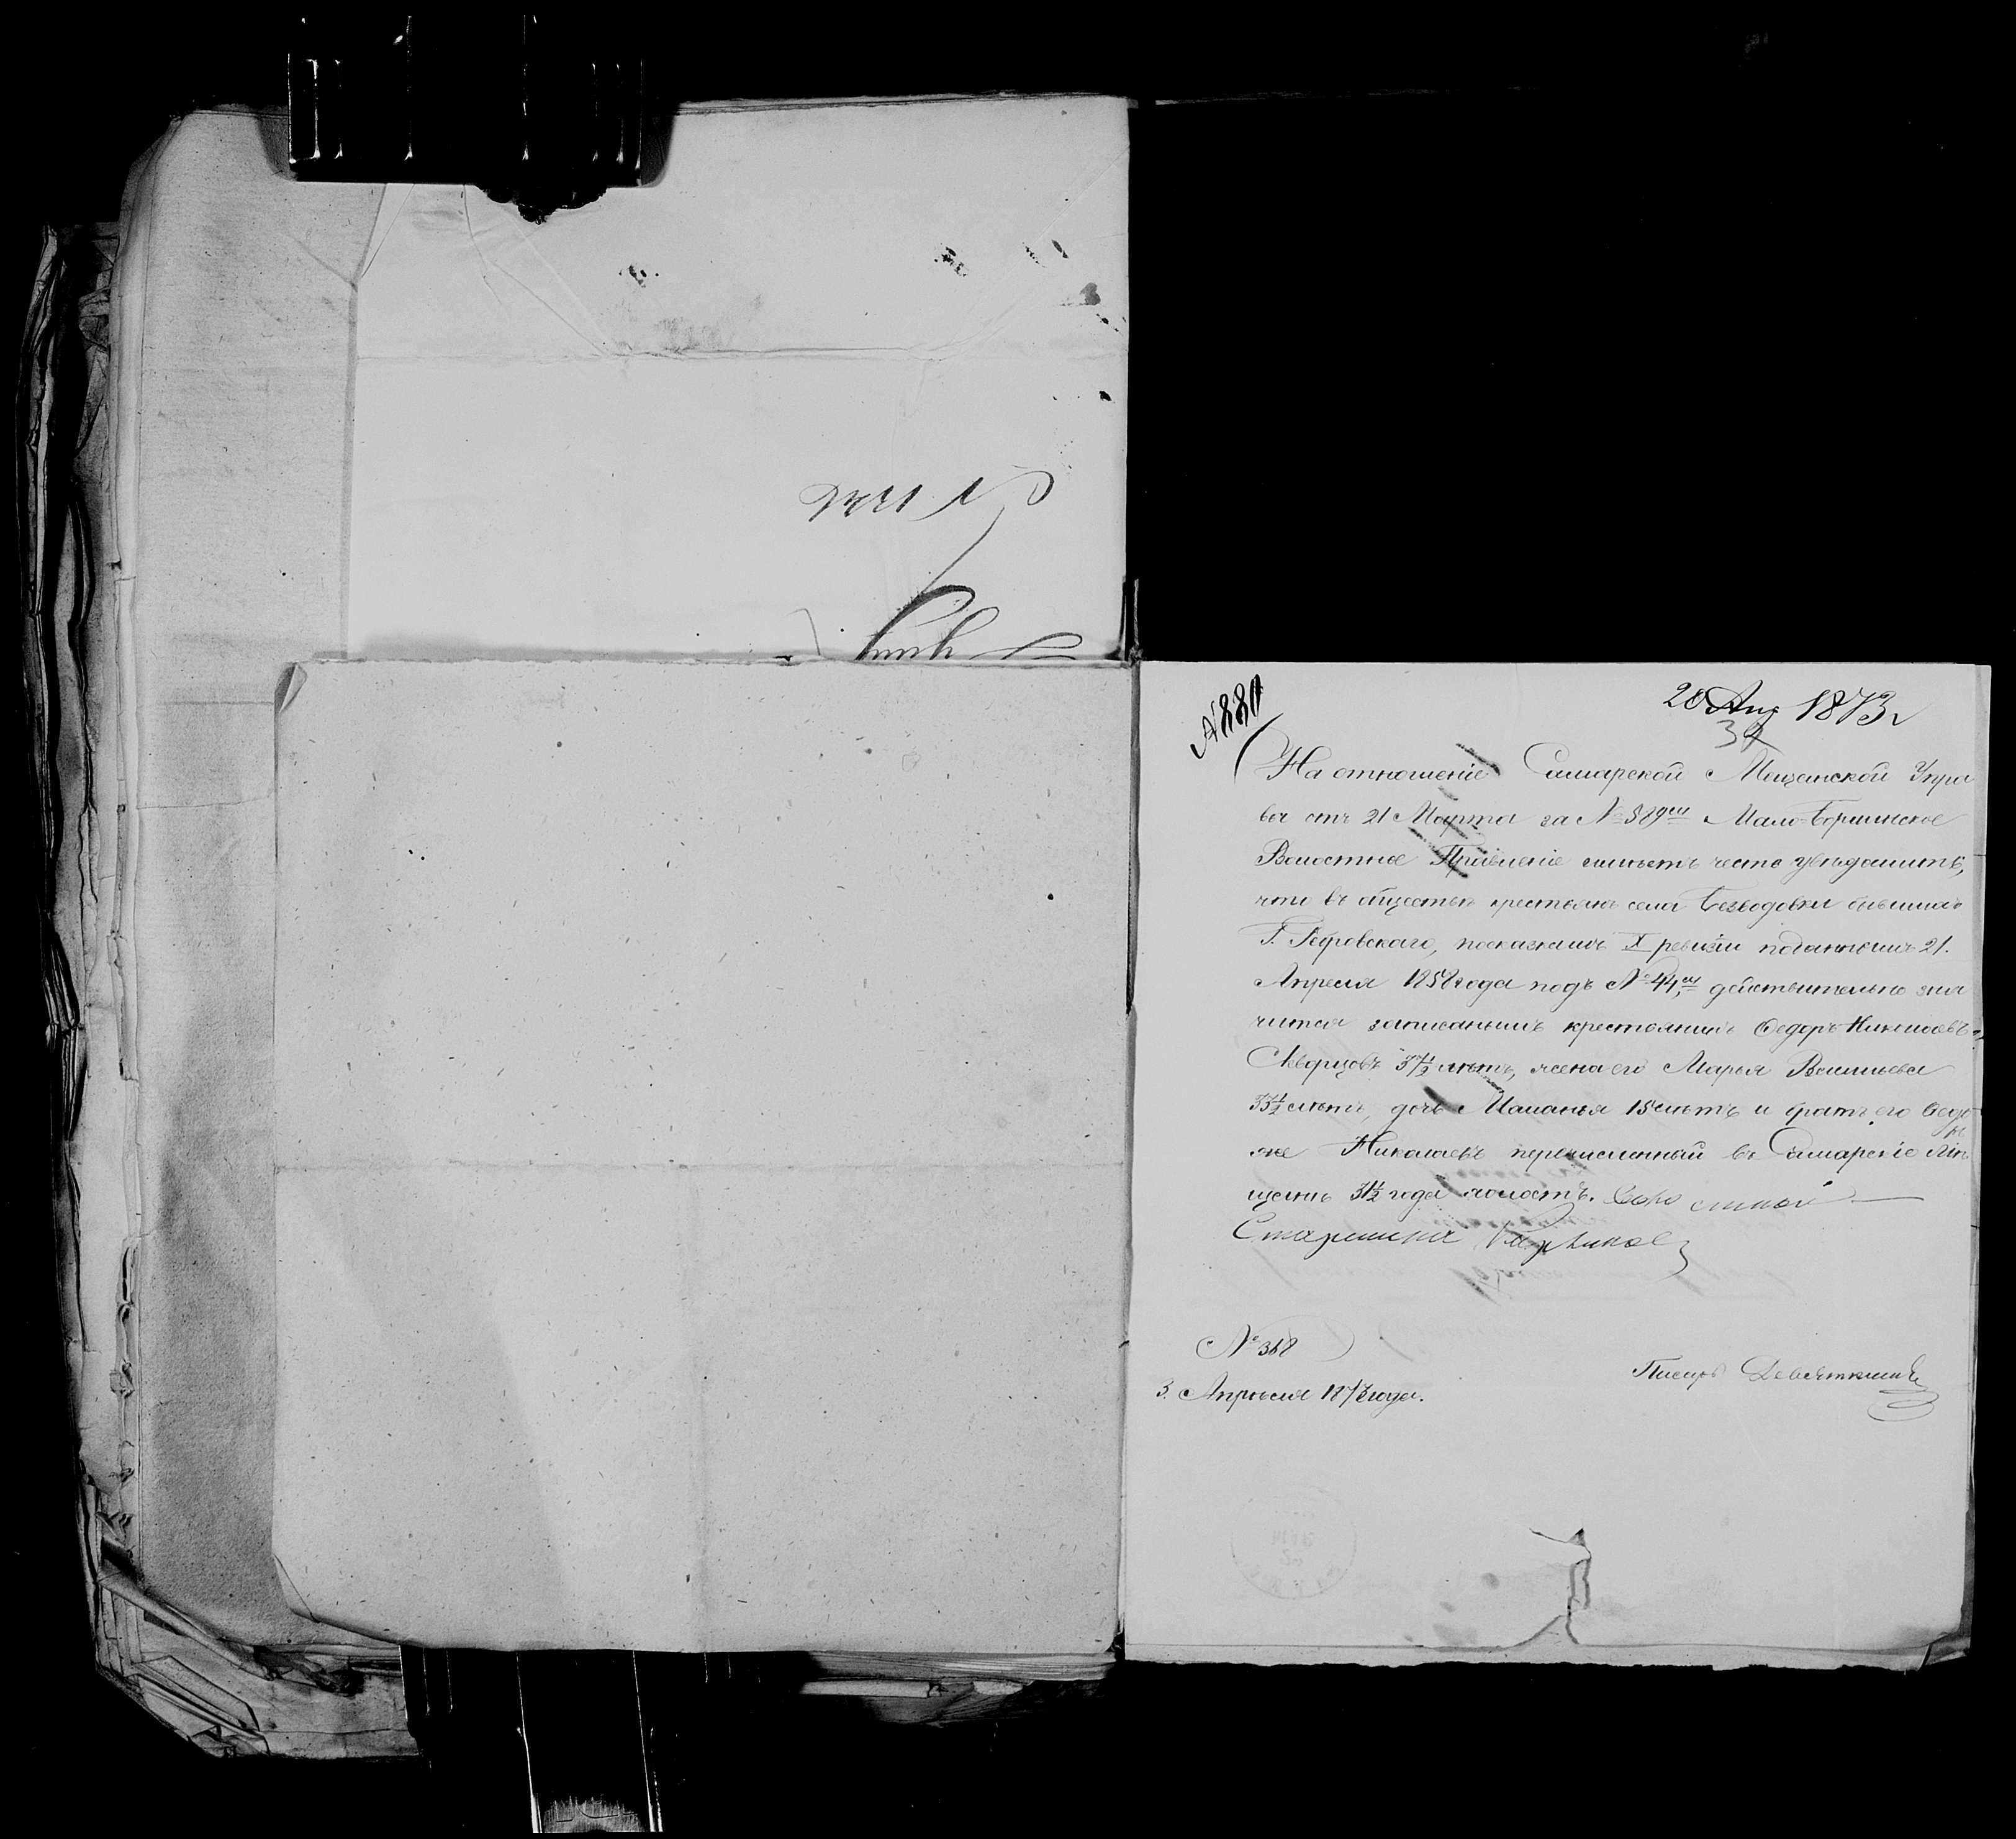 № 880
20 Апр 1873 г
32
На отношеніе Самарской Мещанской Упра
вы отъ 21 Марта за № 589ем Мало-Борлинское
Волостное Правленіе имѣетъ честь увѣдомить,
что въ обществѣ крестьянъ села Безводовки бывшихъ
Г. Петровскаго, посказкамъ X ревизіи поданнымъ 21.
Апреля 1858 года подъ № 44,ем действительно зна
чится записаннымъ крестьянинъ Федоръ Николаевъ
Скворцовъ 37½ летъ, жена его Марья Васильева
33½ летъ, дочь Маланья 15 летъ и братъ его Федоръ
же Николаевъ перечисленный въ Самарскіе Мѣ
щане 31½ года холостъ.
Старшина
№ 368
3. Апрѣля 1873 года.
Писарь Девяткинъ